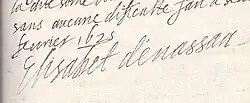 la dite som
sans aucune dificulte fait a
feburier 1625
Elisabet de nassau